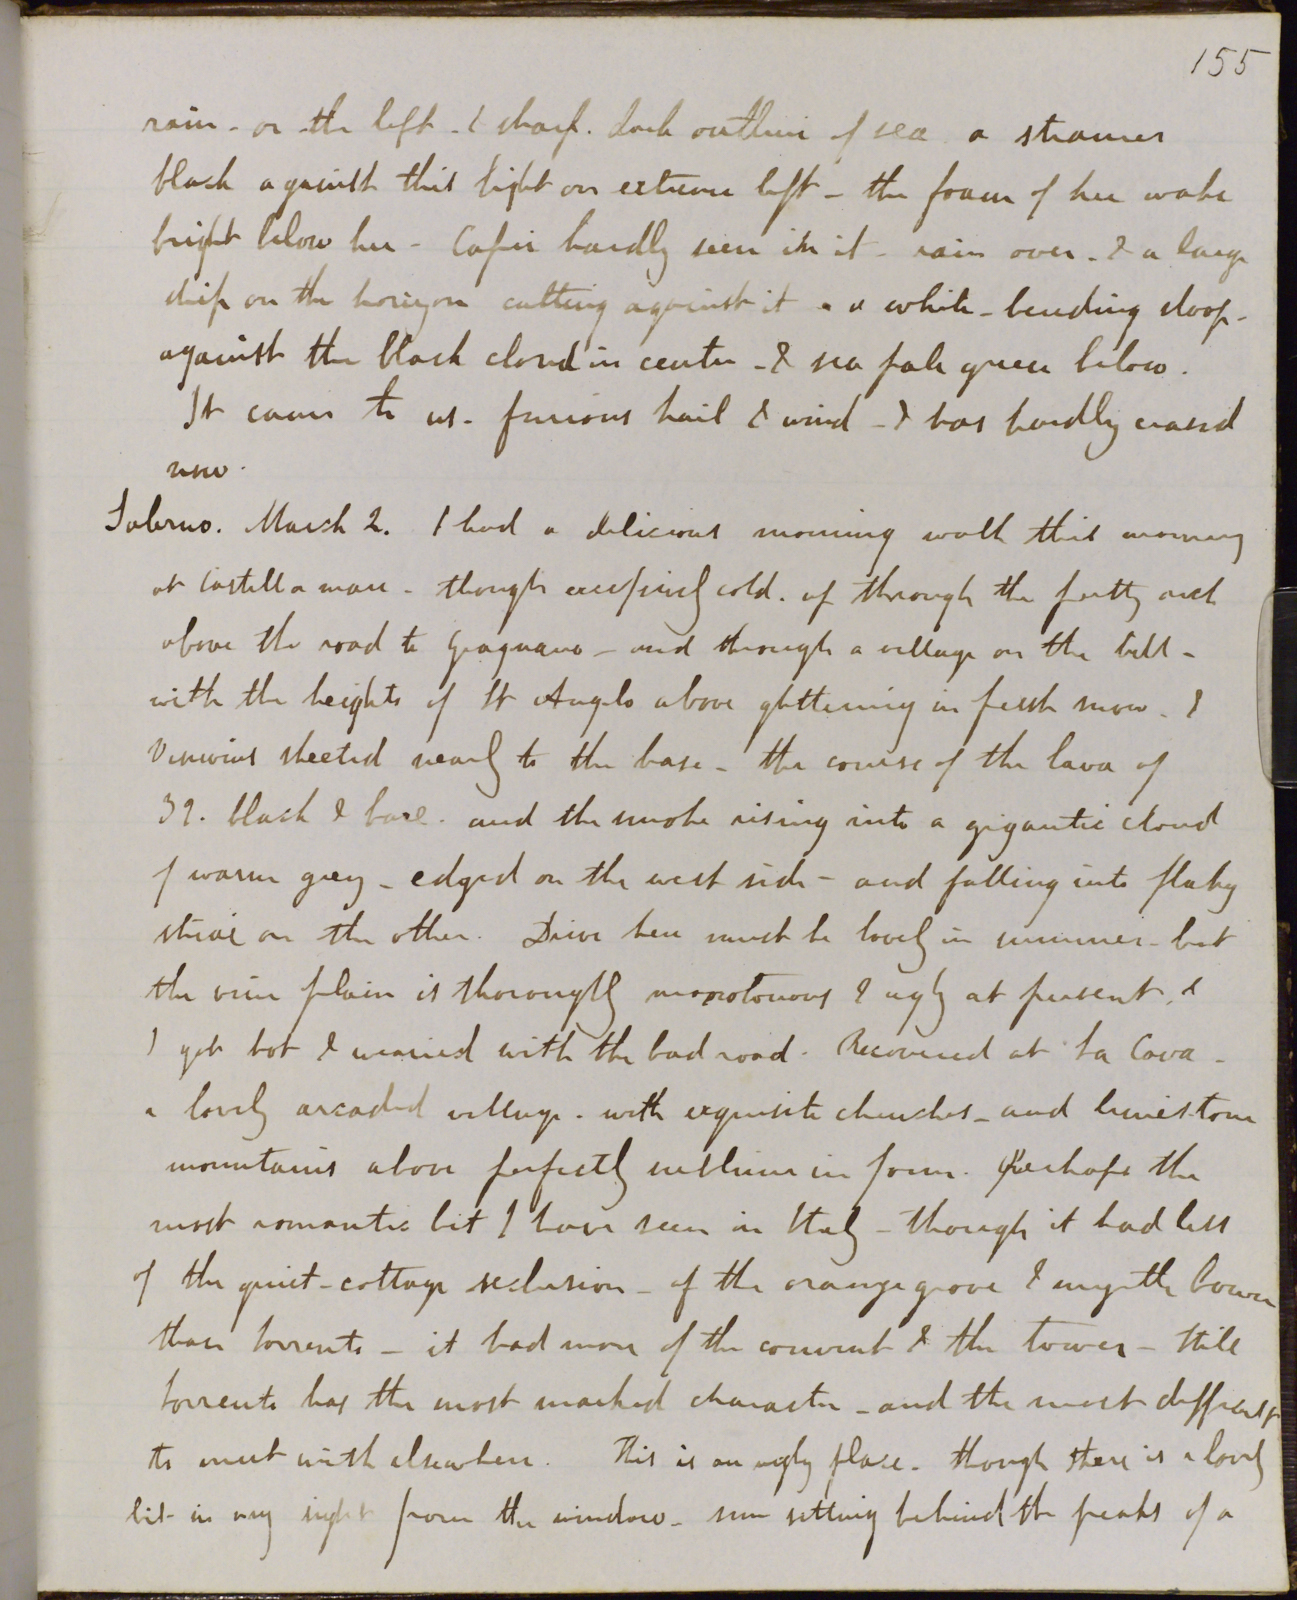 155
rain - on the left - & sharp. dark outline of sea a steamer
black against this light on extreme left - the foam of her wake
bright below her - Capri hardly seen in it - rain over - & a large
ship on the horizon cutting against it - a white - bending sloop -
against the black cloud in centre - & sea pale green below.
It came to us - furious hail & wind - & has hardly ceased
now.
Salerno. March 2. I had a delicious morning walk this morning
at Castellamare - though excessively cold. up through the pretty arch
above the road to Gragnano - and through a village on the hill -
with the heights of St Angelo above glittering in fresh snow - &
Vesuvius sheeted nearly to the base - the course of the lava of
39. black & bare. and the smoke rising into a gigantic cloud
of warm grey - edged on the west side - and falling into flaky
striae on the other. Drive here must be lovely in summer - but
the vine plain is thoroughly monotonous & ugly at present, &
I got hot & wearied with the bad road. Recovered at La Cava -
a lovely arcaded village - with exquisite churches - and limestone
mountains above perfectly sublime in form. Perhaps the
most romantic bit I have seen in Italy - though it had less
of the quiet - cottage seclusion - of the orange grove & myrtle bower
than Sorrento - it had more of the convent & the tower - still
Sorrento has the most marked character - and the most difficult
to meet with elsewhere. This is an ugly place - though there is a lovely
bit in my sight from the window - sun setting behind the peaks of a